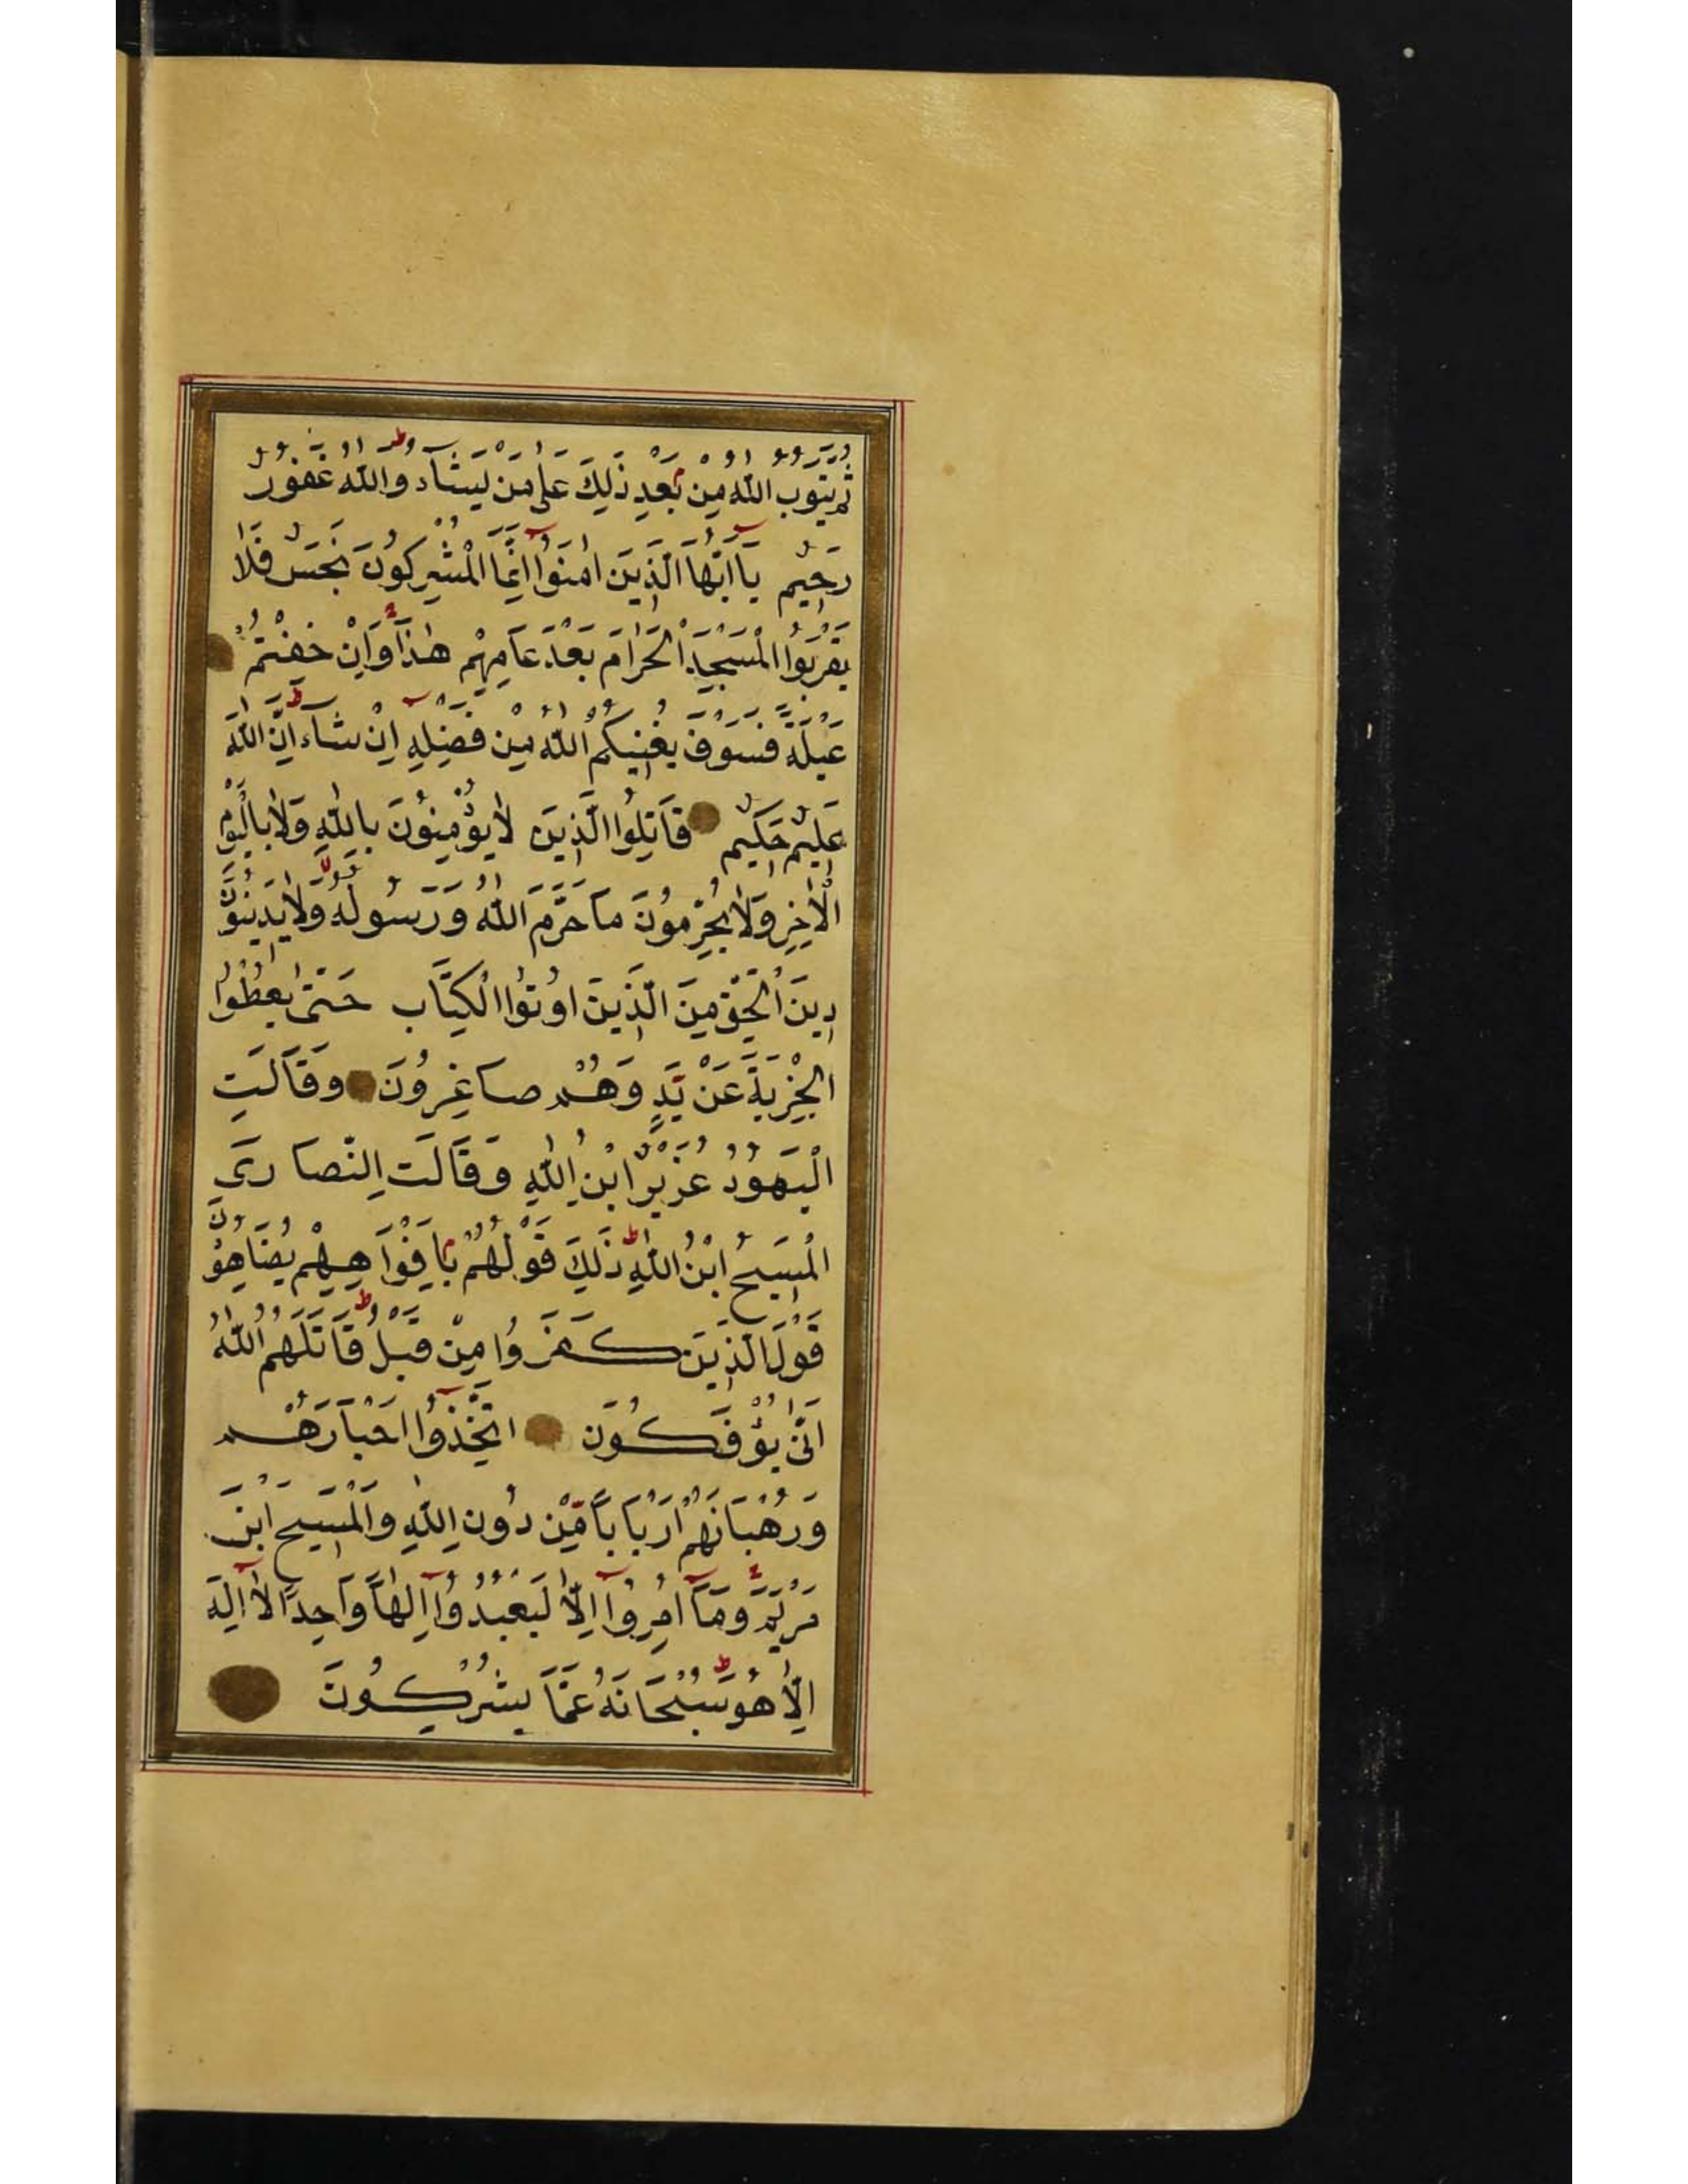 ثُمَّ يَتُوبُ اللّٰهُ مِنْ بَعْدِ ذٰلِكَ عَلٰى مَنْ يَشَآءُ وَاللّٰهُ غَفُورٌ
رَحِيمٌ يَآ اَيُّهَا الَّذِينَ اٰمَنُوٓا اِنَّمَا الْمُشْرِكُونَ نَجَسٌ فَلَا
يَقْرَبُوا الْمَسْجِدَ الْحَرَامَ بَعْدَ عَامِهِمْ هٰذَا وَاِنْ خِفْتُمْ
عَيْلَةً فَسَوْفَ يُغْنِيكُمُ اللّٰهُ مِنْ فَضْلِهِ اِنْ شَآءَ اِنَّ اللّٰهَ
عَلِيمٌ حَكِيمٌ قَاتِلُوا الَّذِينَ لَا يُؤْمِنُونَ بِاللّٰهِ وَلَا بِالْيَوْمِ
الْاٰخِرِ وَلَا يُحَرِّمُونَ مَا حَرَّمَ اللّٰهُ وَرَسُولُهُ وَلَا يَدِينُونَ
دِينَ الْحَقِّ مِنَ الَّذِينَ اُوتُوا الْكِتَابَ حَتّٰى يُعْطُوا
الْجِزْيَةَ عَنْ يَدٍ وَهُمْ صَاغِرُونَ وَقَالَتِ
الْيَهُودُ عُزَيْرٌ ابْنُ اللّٰهِ وَقَالَتِ النَّصَارَى
الْمَسِيحُ ابْنُ اللّٰهِ ذٰلِكَ قَوْلُهُمْ بِاَفْوَاهِهِمْ يُضَاهِؤُنَ
قَوْلَ الَّذِينَ كَفَرُوا مِنْ قَبْلُ قَاتَلَهُمُ اللّٰهُ
اَنّٰى يُؤْفَكُونَ اتَّخَذُوٓا اَحْبَارَهُمْ
وَرُهْبَانَهُمْ اَرْبَابًا مِّنْ دُونِ اللّٰهِ وَالْمَسِيحَ ابْنَ
مَرْيَمَ وَمَآ اُمِرُوٓا اِلَّا لِيَعْبُدُوٓا اِلٰهًا وَاحِدًا لَآ اِلٰهَ
اِلَّا هُوَ سُبْحَانَهُ عَمَّا يُشْرِكُونَ